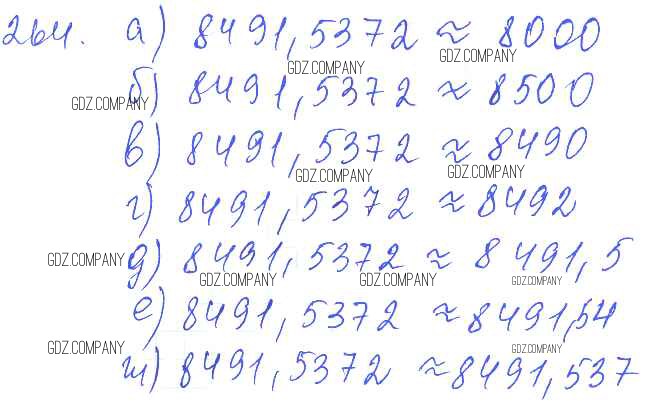 264. а) 8491,5372 ≈ 8000
GDZ.COMPANY
GDZ.COMPANY
б) 8491,5372 ≈ 8500
GDZ.COMPANY
в) 8491,5372 ≈ 8490
GDZ.COMPANY
GDZ.COMPANY
г) 8491,5372 ≈ 8492
д) 8491,5372 ≈ 8491,5
GDZ.COMPANY
GDZ.COMPANY
GDZ.COMPANY
GDZ.COMPANY
е) 8491,5372 ≈ 8491,54
GDZ.COMPANY
GDZ.COMPANY
ж) 8491,5372 ≈ 8491,537